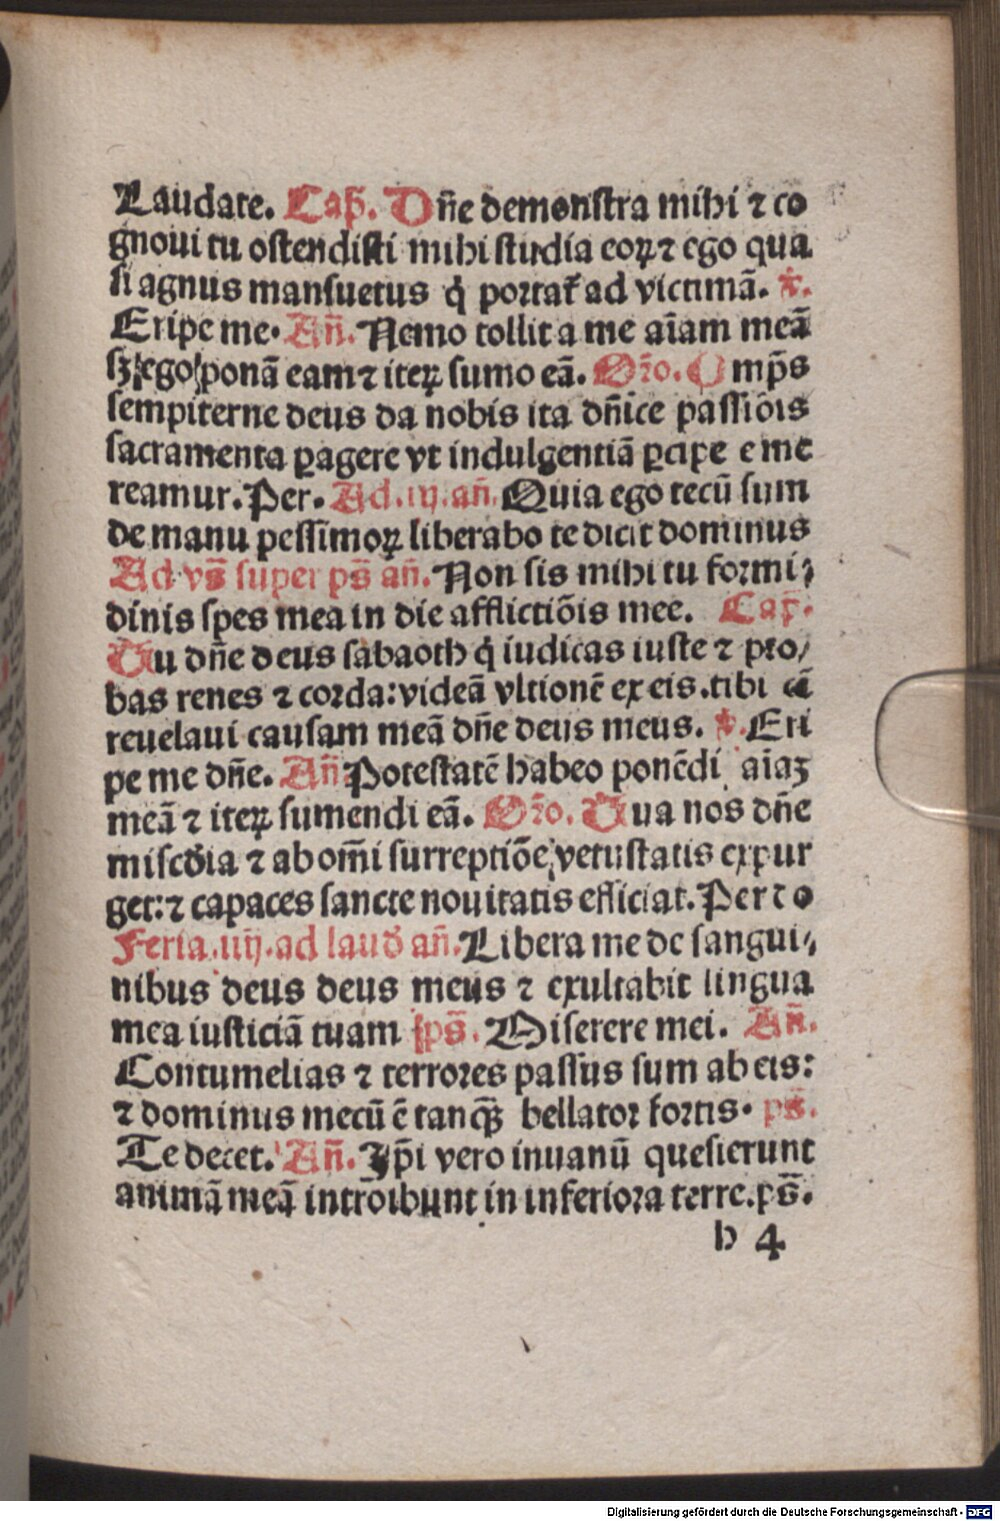 Laudate. Cap̄. Dn̄e demonſtra mihi ⁊ co
gnoui tu oſtendiſti mihi ſtudia eoꝝ ⁊ ego qua
ſi agnus manſuetus q̇ portat̄ ad victimā. ℣.
Eripe me. An̄. Nemo tollit a me aīam meā
ſꝫ ego ponā eam ⁊ iteꝝ ſumo eā. Oꝛ̄o. Omp̄s
ſempiterne deus da nobis ita dn̄ice paſſiōis
ſacramenta ꝑagere vt indulgentiā ꝑcipe e me
reamur. Per. Ad .iij. an̄. Quia ego tecū ſum
de manu peſſimoꝝ liberabo te dicit dominus
Ad vs̄ ſuper ps̄ an̄. Non ſis mihi tu formi⸗
dinis ſpes mea in die afflictiōis mee. Cap̄.
Tu dn̄e deus ſabaoth q̇ iudicas iuſte ⁊ pꝛo⸗
bas renes ⁊ corda: videā vltionē ex eis. tibi em̄
reuelaui cauſam meā dn̄e deus meus. ℣. Eri
pe me dn̄e. An̄ Poteſtatē habeo ponēdi aīaꝫ
meā ⁊ iteꝝ ſumendi eā. Oꝛ̄o. Tua nos dn̄e
miſcd̄ia ⁊ ab om̄i ſurreptiōe vetuſtatis expur
get: ⁊ capaces ſancte nouitatis efficiat. Per do
Feria .iiij. ad laud̄ an̄. Libera me de ſangui⸗
nibus deus deus meus ⁊ exultabit lingua
mea iuſticiā tuam ps̄. Miſerere mei. An̄.
Contumelias ⁊ terroꝛes paſſus ſum ab eis:
⁊ dominus mecū ē tanqȝ bellatoꝛ fortis. ps̄.
Te decet. An̄. Ip̄i vero inuanū queſierunt
animā meā introibunt in inferioꝛa terre. ps̄.
b 4
Digitalisierung gefördert durch die Deutsche Forschungsgemeinschaft - DFG